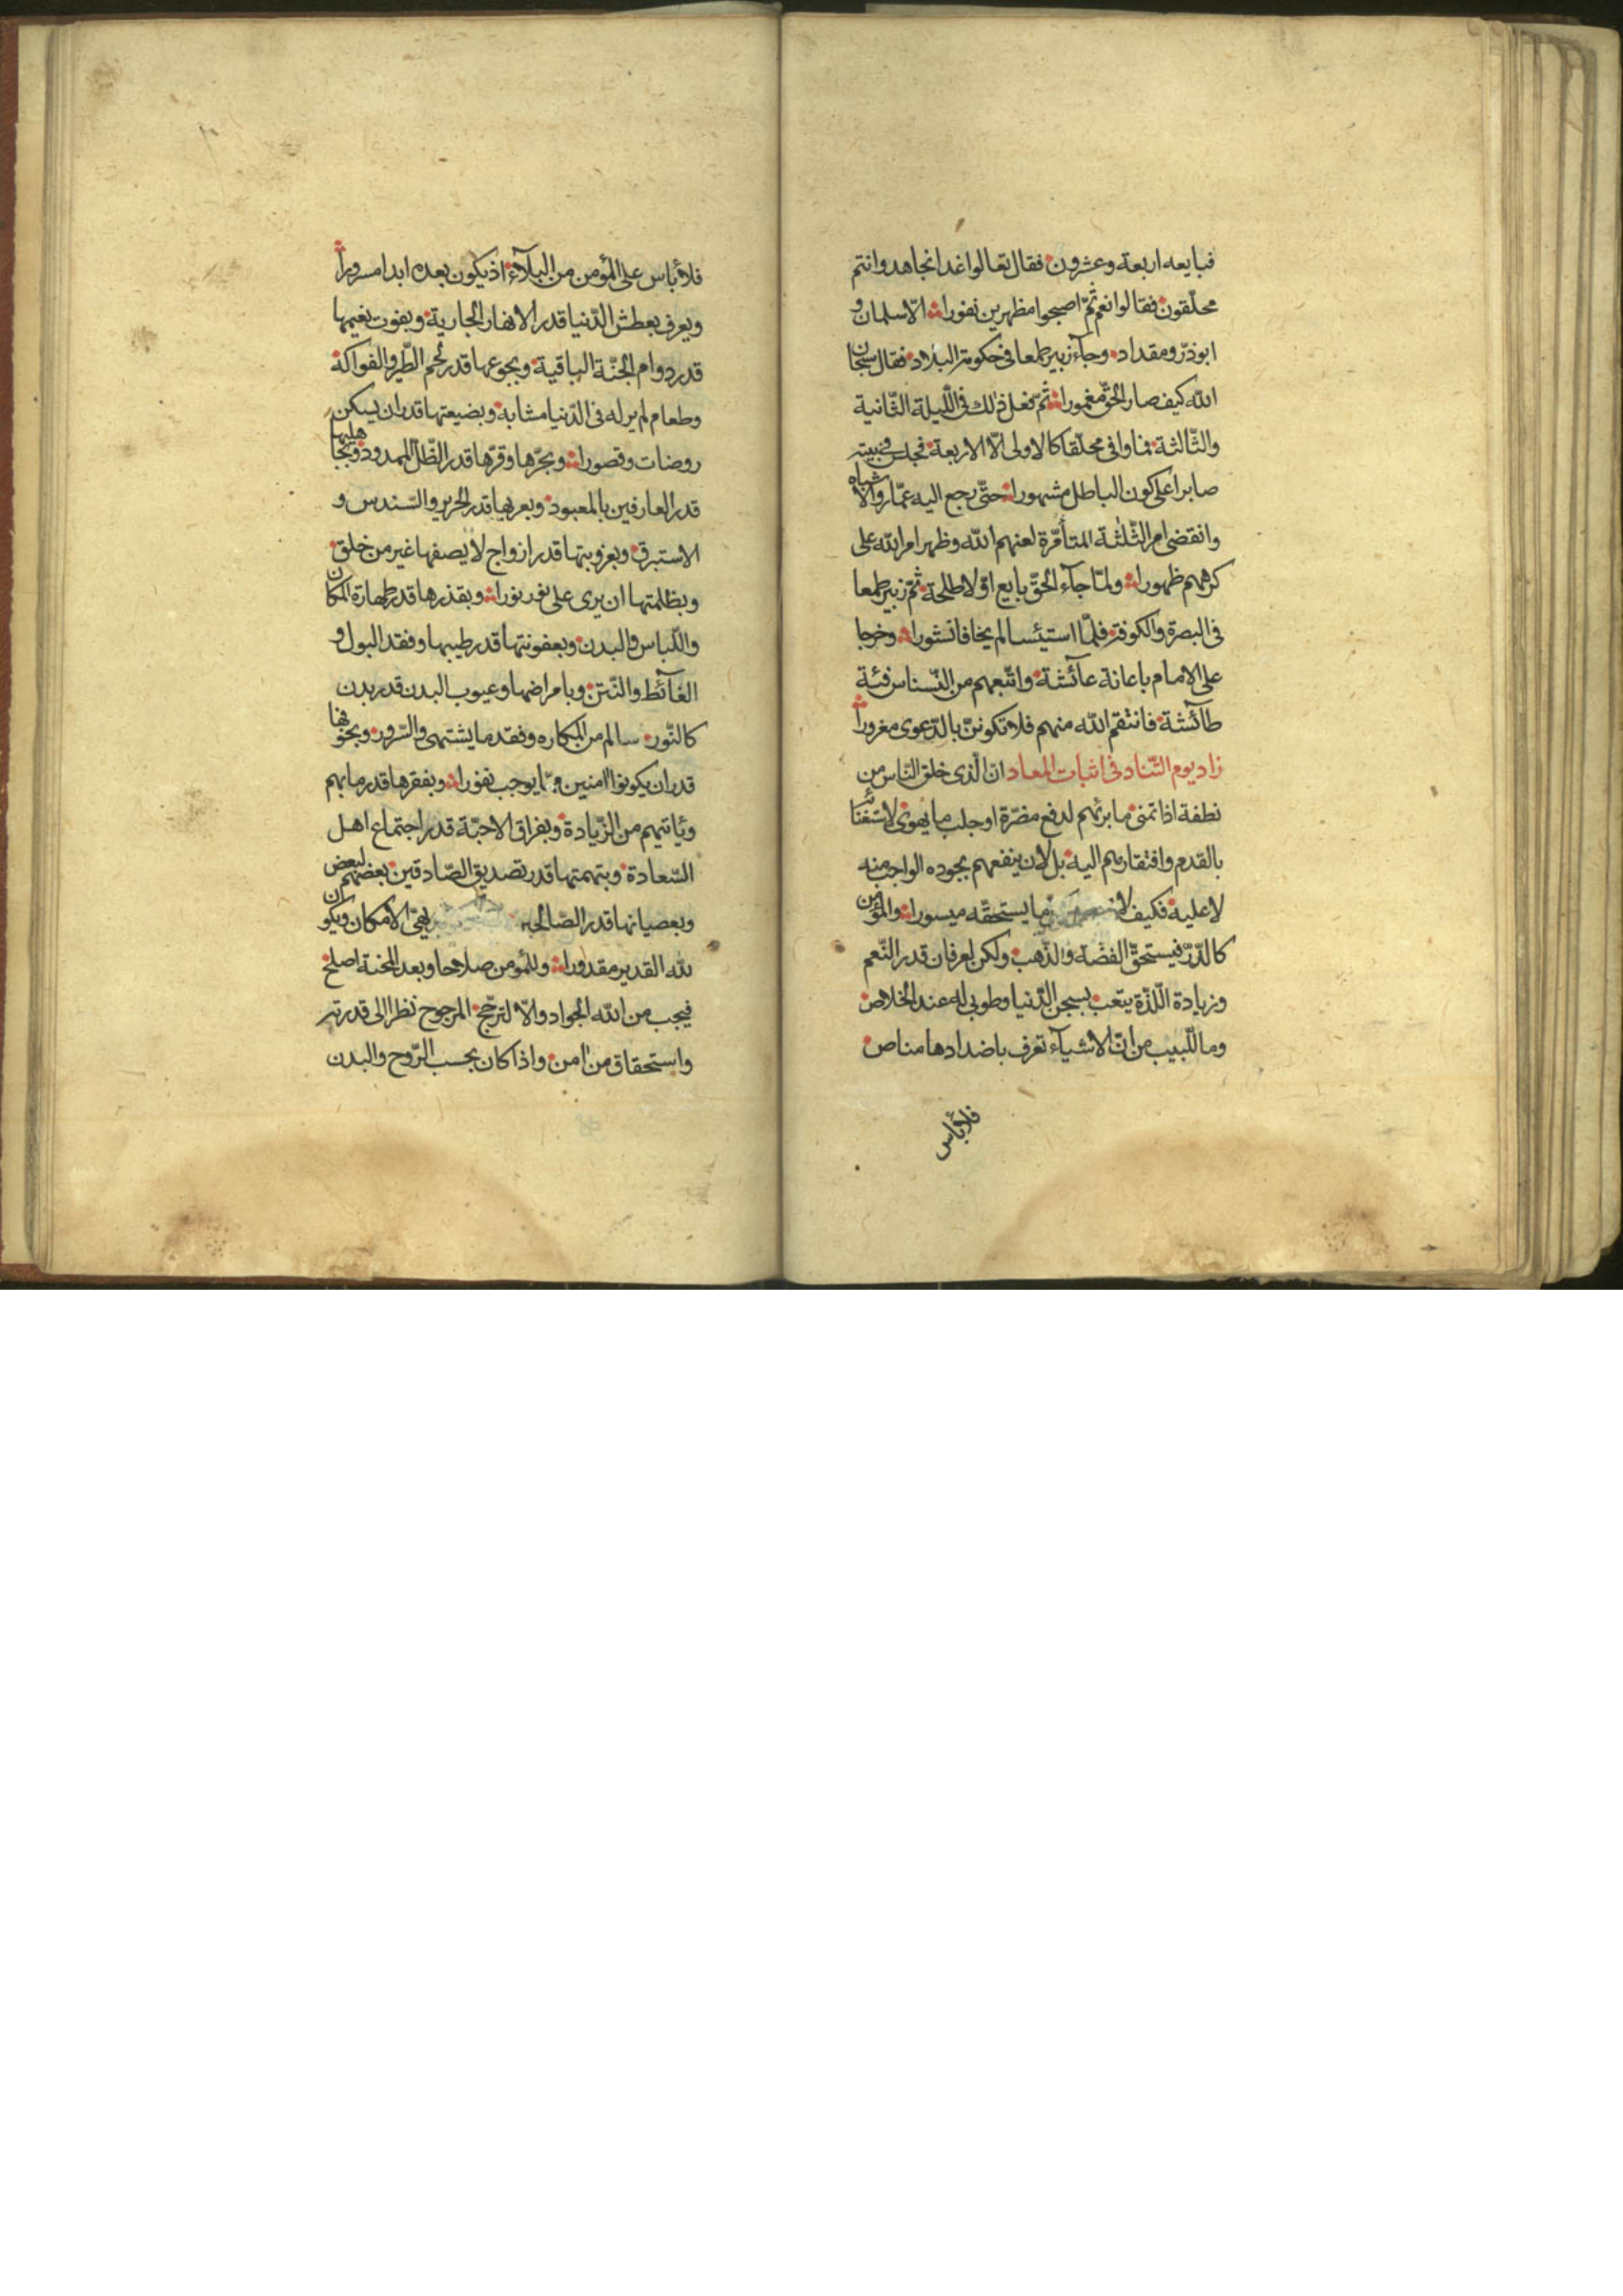 فبايعه اربعة وعشرون فقال تعالوا غدا نجاهد وانتم
محلّقون فقالوا نعم ثمّ اصبحوا مظهرين نفورا الّا سلمان و
ابوذرّ ومقداد وجآء زبير طمعا في حكومة البلاد فقال سبحان
الله كيف صار الحقّ مغمورا ثمّ فعل ذلك في اللّيلة الثّانية
والثّالثة فما وافى محلّقا كالاولى الّا الاربعة فجلس في بيته
صابرا على كون الباطل مشهورا حتّى رجع اليه عمّار والاشباه
وانقضى امر الثّلثة المتأمّرة لعنهم الله وظهر امر الله على
كرههم ظهورا ولمّا جآء الحقّ بايع اوّلا طلحة ثمّ زبير طمعا
في البصرة والكوفة فلمّا استيئسا لم يخافا نشورا وخرجا
على الامام باعانة عآئشة واتّبعهم من النّسناس فئة
طآئشة فانتقم الله منهم فلا تكوننّ بالدّعوى مغرورا
زاد يوم التّناد في اثبات المعاد انّ الّذى خلق النّاس من
نطفة اذا تمنى ما برئهم لدفع مضرّة او جلب ما يهوى لاستغنائه
بالقدم وافتقارهم اليه بل لان ينفعهم بجوده الواجب منه
لا عليه فكيف لا ما يستحقّه ميسورا والمؤمن
كالدّرّ فيستحقّ الفضّة والذّهب ولكن لعرفان قدر النّعم
وزيادة اللّذّة يتعب بسجن الدّنيا وطوبى له عند الخلاص
وما للّبيب من انّ الاشيآء تعرف باضدادها مناص
فلا بأس
فلا بأس على المؤمن من البلآء اذ يكون بعده ابدا مسرورا
ويعرف بعطش الدّنيا قدر الانهار الجارية وبفوت نعيمها
قدر دوام الجنّة الباقية وبجوعها قدر لحم الطّير والفواكه
وطعام لم ير له في الدّنيا مشابه وبضيعتها قدر ان يسكن
روضات وقصورا وبحرّها وقرّها قدر الظّلّ الممدود وبجاهليها
قدر العارفين بالمعبود وبعريها قدر الحرير والسّندس و
الاستبرق وبعزوبتها قدر ازواج لا يصفها غير من خلق
وبظلمتها ان يرى على نور نورا وبقذرها قدر طهارة المكان
واللّباس والبدن وبعفونتها قدر طيبها وفقد البول و
الغآئط والنّتن وبامراضها وعيوب البدن قدر بدن
كالنّور سالم من المكاره وفقد ما يشتهى والسّرور وبخوفها
قدر ان يكونوا امنين ممّا يوجب نفورا وبفقرها قدر ما بهم
ويأتيهم من الزّيادة وبفراق الاحبّة قدر اجتماع اهل
السّعادة وبتهمتها قدر تصديق الصّادقين بعضهم لبعض
وبعصيانها قدر الصّالحين الامكان ويكون
لله القدير مقدورا وللمؤمن صلاحا وبعد المحنة اصلح
فيجب من الله الجواد والّا لترجّح المرجوح نظرا الى قدرته
واستحقاق من امن واذا كان بحسب الرّوح والبدن